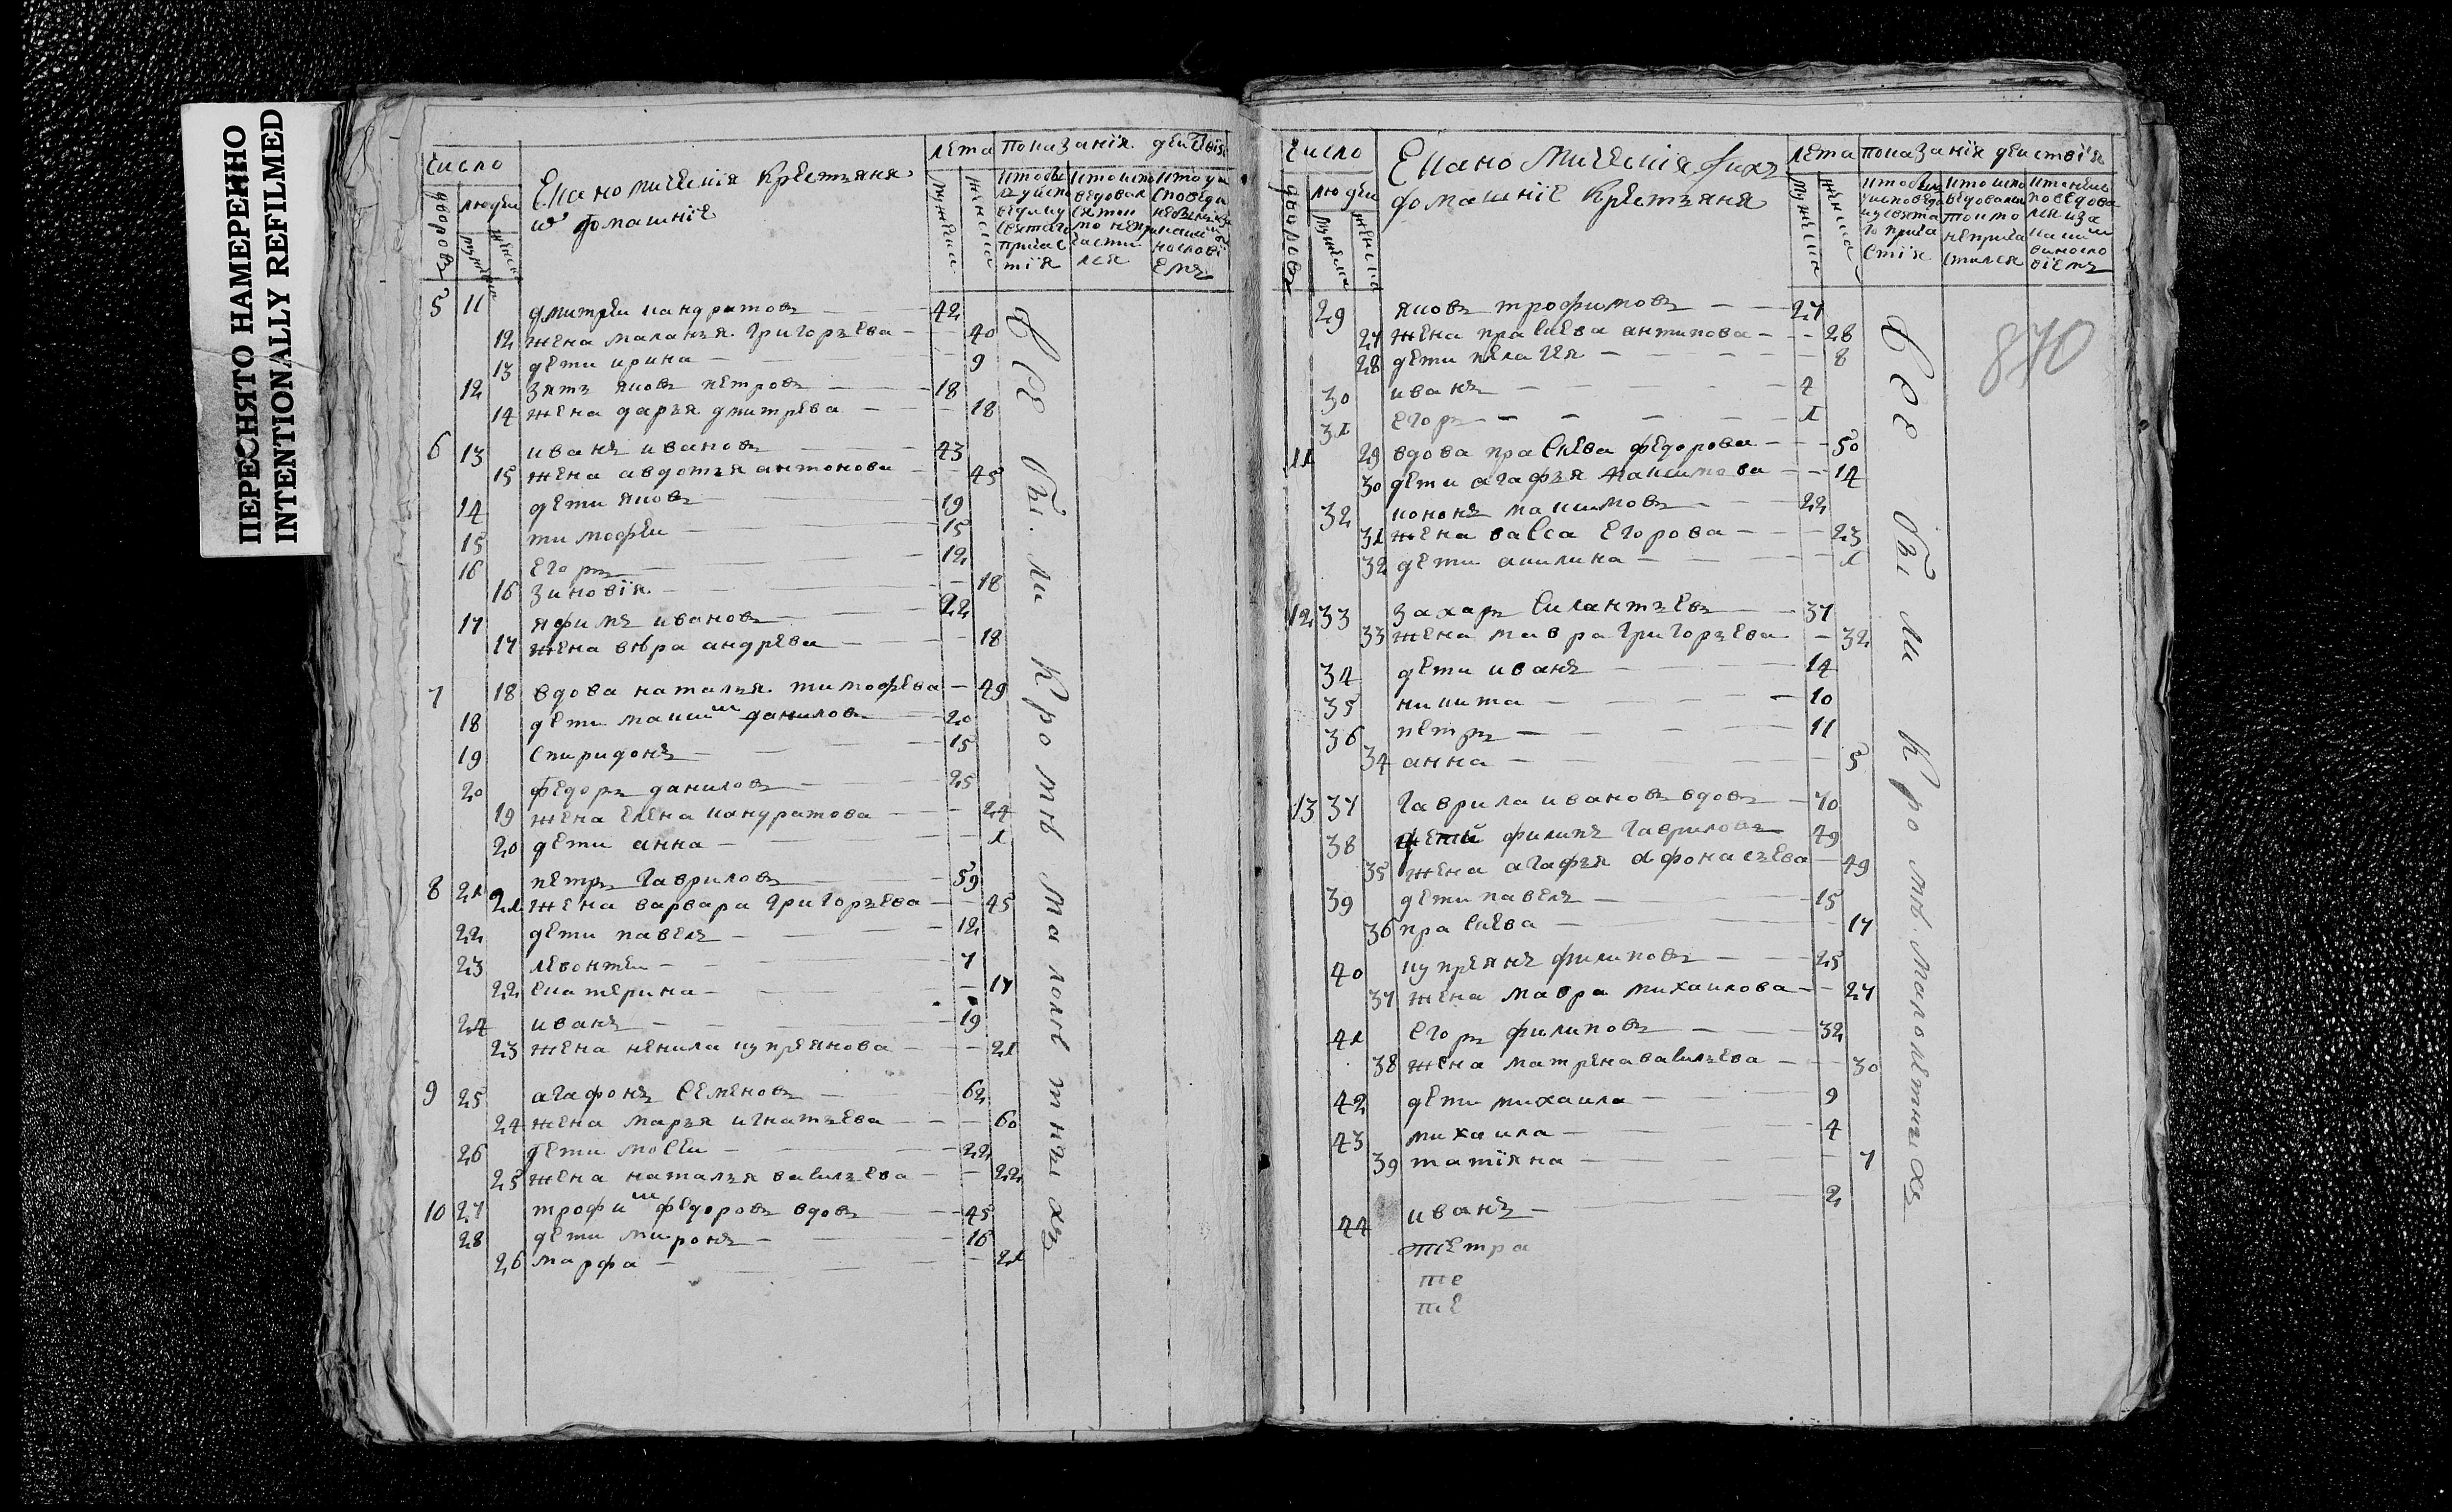 ПЕРЕСНЯТО НАМЕРЕННО
INTENTIONALLY REFILMED
число
дворовъ
людеи
мужеска
женска
Екано мическия крестьяня
и домашнiе
лета
мужески
женски
показанiя деиствiя
5 11 дмитреи кандратовъ 42
12 жена маланья григорьева 40
13 дети ирина 9
12 зять яковъ петровъ 18
14 жена дарья дмитрева 18
6 13 иванъ ивановъ 43
15 жена авдотья антонова 45
14 дети яковъ 19
15 тимофеи 15
16 егоръ 12
16 зиновiя 18
17 яфимъ ивановъ 22
17 жена вѣра андрева 18
7 18 вдова наталья тимофева 49
18 дети максим данилов 20
19 спиридонъ 15
20 федоръ даниловъ 25
19 жена елена кандратова 24
20 дети анна 1
8 21 петръ гавриловъ 59
21 жена варвара григорьева 45
22 дети павелъ 12
23 левонтеи 7
22 екатерина 17
24 иванъ 19
23 жена ненила купреянова 21
9 25 агафонъ семеновъ 62
24 жена марья игнатьева 60
26 дети мосеи 22
25 жена наталья васильева 22
10 27 трофим федоровъ вдовъ 45
28 дети миронъ 16
26 марфа 21
все были кромѣ малолѣтныхъ
число
дворовъ
людеи
мужеска
женска
Екано мическiя ихъ
домашнiе крестьяня
лета
мужеска
женска
показанiя деиствiя
870
29 яковъ трофимовъ 27
27 жена праскева антипова 28
28 дети пелагея 8
30 иванъ 4
31 егоръ 1
11 29 вдова праскева федорова 50
30 дети агафья максимова 14
32 кононъ макимовъ 22
31 жена васса егорова 23
32 дети акилина 1
12 33 захаръ силантьевъ 37
33 жена мавра григорьева 32
34 дети иванъ 14
35 никита 10
36 петръ 11
34 анна 5
13 37 гаврила ивановъ вдовъ 70
38 дети филипъ гавриловъ 49
35 жена агафья афонасьева 49
39 дети павелъ 15
36 праскева 17
40 купреянъ филиповъ 25
37 жена мавра михаилова 27
41 егоръ филиповъ 32
38 жена матрена васильева 30
42 дети михаила 9
43 михаила 4
39 татiяна 7
44 иванъ 2
тетра
те
те
все были кромѣ малолетныхъ